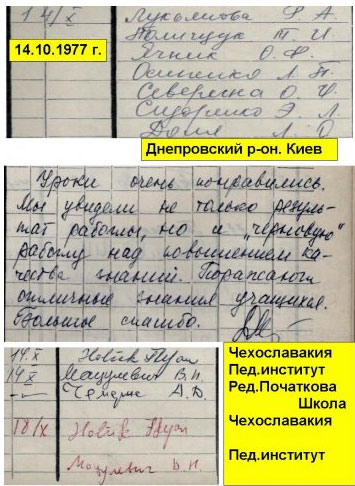 14/X Лукьянова Ф. А.
14.10.1977 г.
Полищук Т. И.
Ячник О. Ф.
Осипенко Л. П.
Северина О. Ч.
Сидоренко Э. Л.
Л. О.
Днепровский р-он. Киев
Уроки очень понравились.
Мы увидели не только резуль-
тат работы, но и „черновую"
работу над повышением ка-
чества знаний. Поражают
отличные знания учащихся.
Большое спасибо.
14.X Новік
14 X Мацулевич В. И.
А. Д.
18/X Новік
Мацулевич В. И.
Чехославакия
Пед.институт
Ред.Початкова
Школа
Чехославакия
Пед.институт